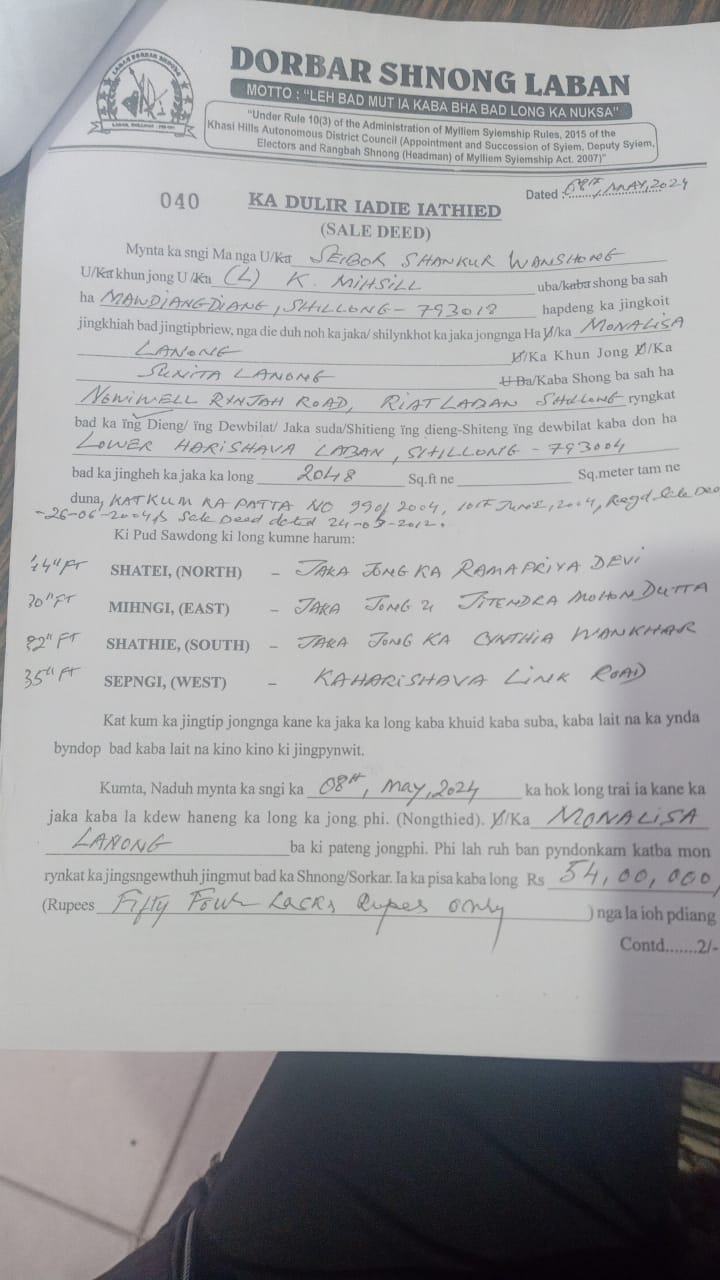 DORBAR SHNONG LABAN
MOTTO : "LEH BAD MUT IA KABA BHA BAD LONG KA NUKSA"
"Under Rule 10(3) of the Administration of Mylliem Syiemship Rules, 2015 of the
Khasi Hills Autonomous District Council (Appointment and Succession of Syiem, Deputy Syiem,
Electors and Rangbah Shnong (Headman) of Mylliem Syiemship Act. 2007)"
Dated : 08th, MAY, 2024
040 KA DULIR IADIE IATHIED
(SALE DEED)
Mynta ka sngi Ma nga U/Ka SEIBOR SHANKUR WANSHONG
U/Ka khun jong U/Ka (L) K. MIHSILL uba/kaba shong ba sah
ha MAWDIANGDIANG, SHILLONG - 793018 hapdeng ka jingkoit
jingkhiah bad jingtipbriew, nga die duh noh ka jaka/ shilynkhot ka jaka jongnga Ha U/ka MONALISA
LANONG U/Ka Khun Jong U/Ka
SUNITA LANONG U Ba/Kaba Shong ba sah ha
NONGWELL RYNJAH ROAD, RIATLABAN SHILLONG ryngkat
bad ka ïng Dieng/ ïng Dewbilat/ Jaka suda/Shitieng ïng dieng-Shiteng ïng dewbilat kaba don ha
LOWER HARISHAVA LABAN, SHILLONG - 793004
bad ka jingheh ka jaka ka long 2048 Sq.ft ne Sq.meter tam ne
duna, KATKUM KA PATTA NO 990f 2004, 10th JUNE, 2004, Regd Sale Deed
-26-06-2004 & Sale Deed dated 24-05-2012.
Ki Pud Sawdong ki long kumne harum:
SHATEI, (NORTH) - JAKA JONG KA RAMAPRIYA DEVI
30" FT MIHNGI, (EAST) - JAKA JONG U JITENDRA MOHON DUTTA
SHATHIE, (SOUTH) - JAKA JONG KA CYNTHIA WANKHAR
35" FT SEPNGI, (WEST) - KA HARISHAVA LINK ROAD
Kat kum ka jingtip jongnga kane ka jaka ka long kaba khuid kaba suba, kaba lait na ka ynda
byndop bad kaba lait na kino kino ki jingpynwit.
Kumta, Naduh mynta ka sngi ka 08th, May, 2024 ka hok long trai ia kane ka
jaka kaba la kdew haneng ka long ka jong phi. (Nongthied). U/Ka MONALISA
LANONG ba ki pateng jongphi. Phi lah ruh ban pyndonkam katba mon
rynkat ka jingsngewthuh jingmut bad ka Shnong/Sorkar. Ia ka pisa kaba long Rs 54,00,000/
(Rupees Fifty Four Lacks Rupes only ) nga la ioh pdiang
Contd.......2/-